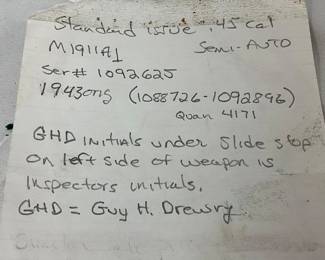 Standard issue .45 cal
M1911A1 Semi-AUTO
Ser# 1092625
1943 (1088726-1092896)
Quan 4171
GHD initials under slide stop
on left side of weapon is
Inspectors initials.
GHD = Guy H. Drewry